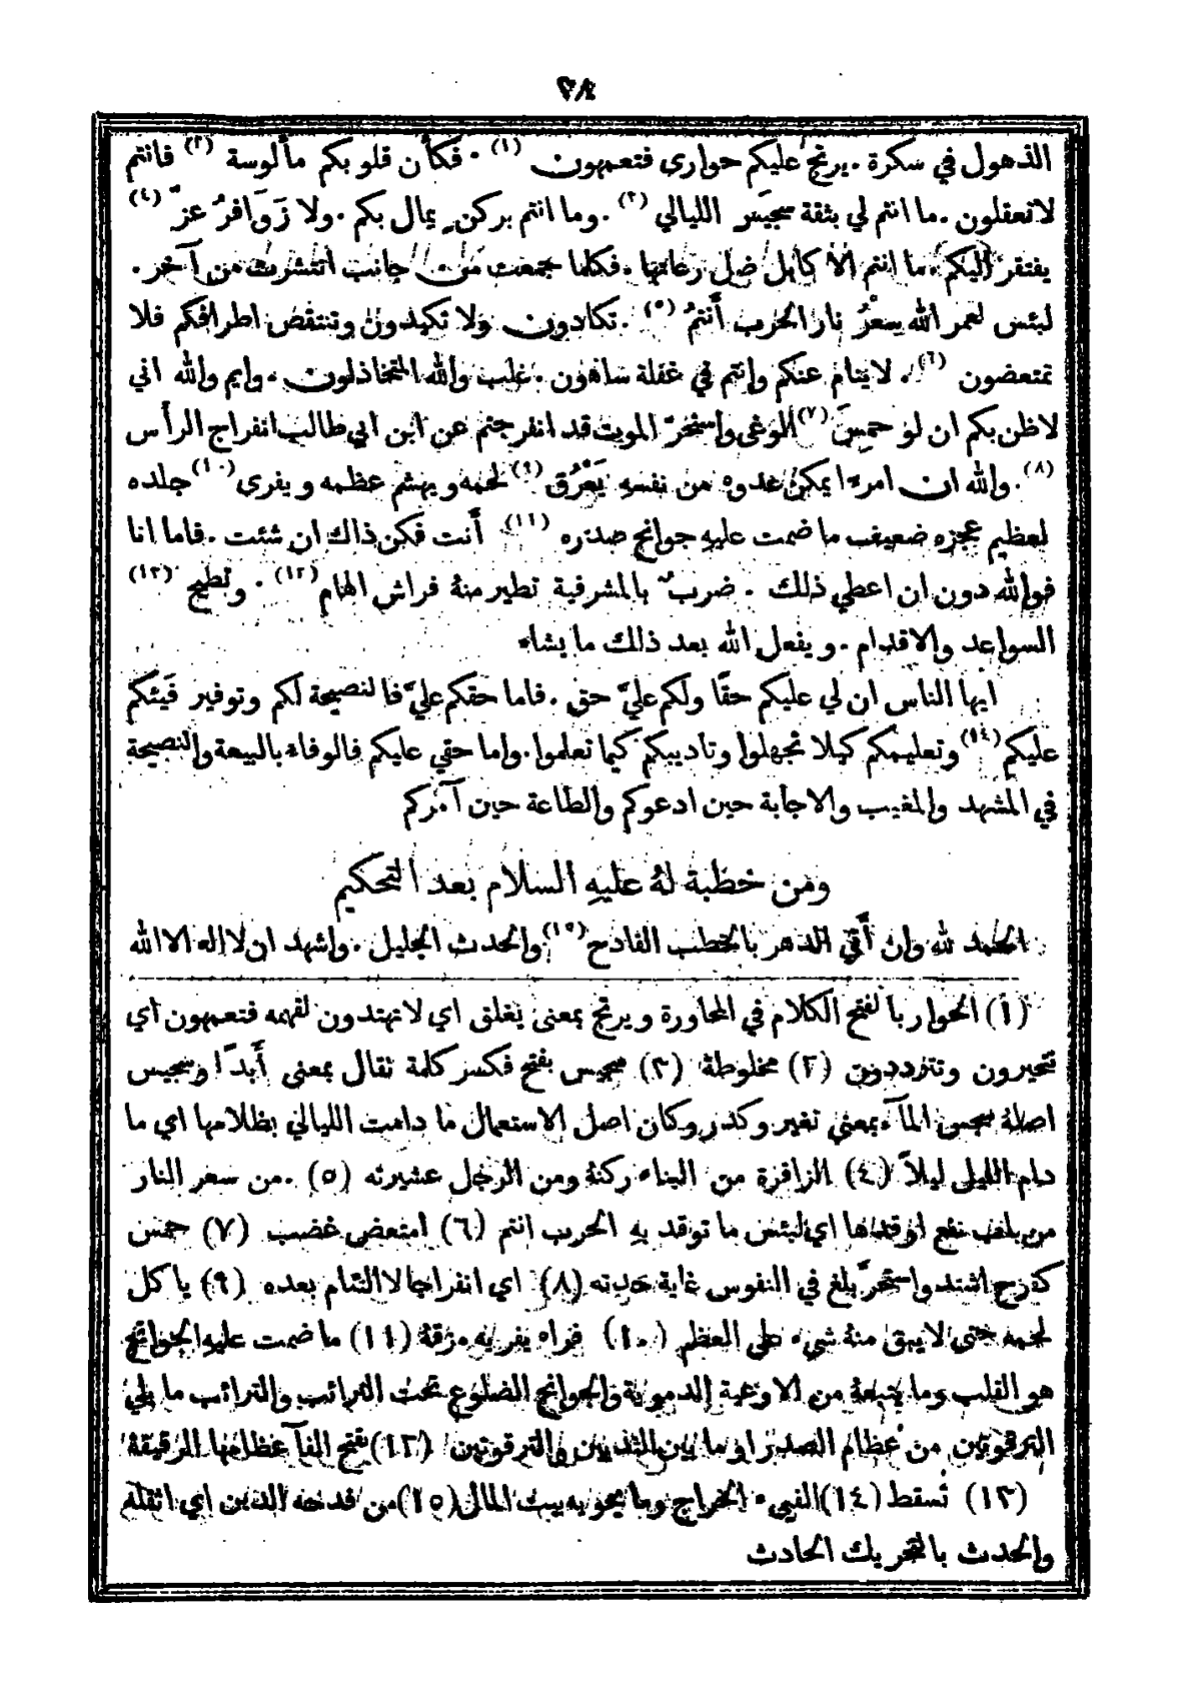 ٣٨
الذهول في سكرة . يرتج عليكم حواري فتعمهون (١) . فكأن قلوبكم مألوسة (٢) فانتم
لا تعقلون . ما انتم لي بثقة سجيس الليالي (٣) . وما انتم بركن يمال بكم . ولا زَوَافرُ عزّ (٤)
يفتقر اليكم . ما انتم الا كابل ضل رعاتها . فكلما جمعت من جانب انتشرت من آخر .
لبئس لعمر الله سعرُ نار الحرب أنتمُ (٥) . تكادون ولا تكيدون وتنتقض اطرافكم فلا
تمتعضون (٦) . لا ينام عنكم وانتم في غفلة ساهون . غلب والله المتخاذلون . وايم والله اني
لاظن بكم ان لو حمِسَ (٧) الوغى واستحرّ الموت قد انفرجتم عن ابن ابي طالب انفراج الرأس
(٨) . والله ان امرءا يمكن عدوه من نفسه يَعْرُق (٩) لحمه ويهشم عظمه ويفري (١٠) جلده
لعظيم عجزه ضعيف ما ضمت عليه جوانح صدره (١١) أنت فكن ذاك ان شئت . فاما انا
فوالله دون ان اعطي ذلك . ضربٌ بالمشرفية تطير منهُ فراش الهام (١٢) . وتطيح (١٣)
السواعد والاقدام . ويفعل الله بعد ذلك ما يشاء
ايها الناس ان لي عليكم حقًا ولكم عليّ حق . فاما حقكم عليّ فالنصيحة لكم وتوفير فَيئكم
عليكم (١٤) وتعليمكم كيلا تجهلوا وتاديبكم كيما تعلموا . واما حقي عليكم فالوفاء بالبيعة والنصيحة
في المشهد والمغيب والاجابة حين ادعوكم والطاعة حين آمركم
ومن خطبة لهُ عليهِ السلام بعد التحكيم
الحمد لله وان أَتى الدهر بالخطب الفادح (١٥) والحدث الجليل . واشهد ان لا اله الا الله
(١) الحوار بالفتح الكلام في المحاورة ويرتج بمعنى يغلق اي لا تهتدون لفهمه فتعمهون اي
تتحيرون وتترددون (٢) مخلوطة (٣) سجيس بفتح فكسر كلمة تقال بمعنى أَبدًا وسجيس
اصلهُ سجس المآء بمعنى تغير وكدر وكان اصل الاستعمال ما دامت الليالي بظلامها اي ما
دام الليل ليلاً (٤) الزافرة من البناء ركنهُ ومن الرجل عشيرته (٥) . من سعر النار
من باب نفع اوقدها اي لبئس ما توقد به الحرب انتم (٦) امتعض غضب (٧) حمس
كفرح اشتد واستحرّ بلغ في النفوس غاية حدته (٨) اي انفراجا لا التئام بعده (٩) ياكل
لحمه حتى لا يبق منهُ شيء على العظم (١٠) فراه يفريه مزقهُ (١١) ما ضمت عليه الجوانح
هو القلب وما يتبعهُ من الاوعية الدموية والجوانح الضلوع تحت الترائب والترائب ما يلي
الترقوتين من عظام الصدر او ما بين الثديين والترقوتين (١٢) بفتح الفآء عظامها الرقيقة
(١٣) تسقط (١٤) الفيء الخراج وما يحويه بيت المال (١٥) من فدحه الدين اي اثقله
والحدث بالتحريك الحادث